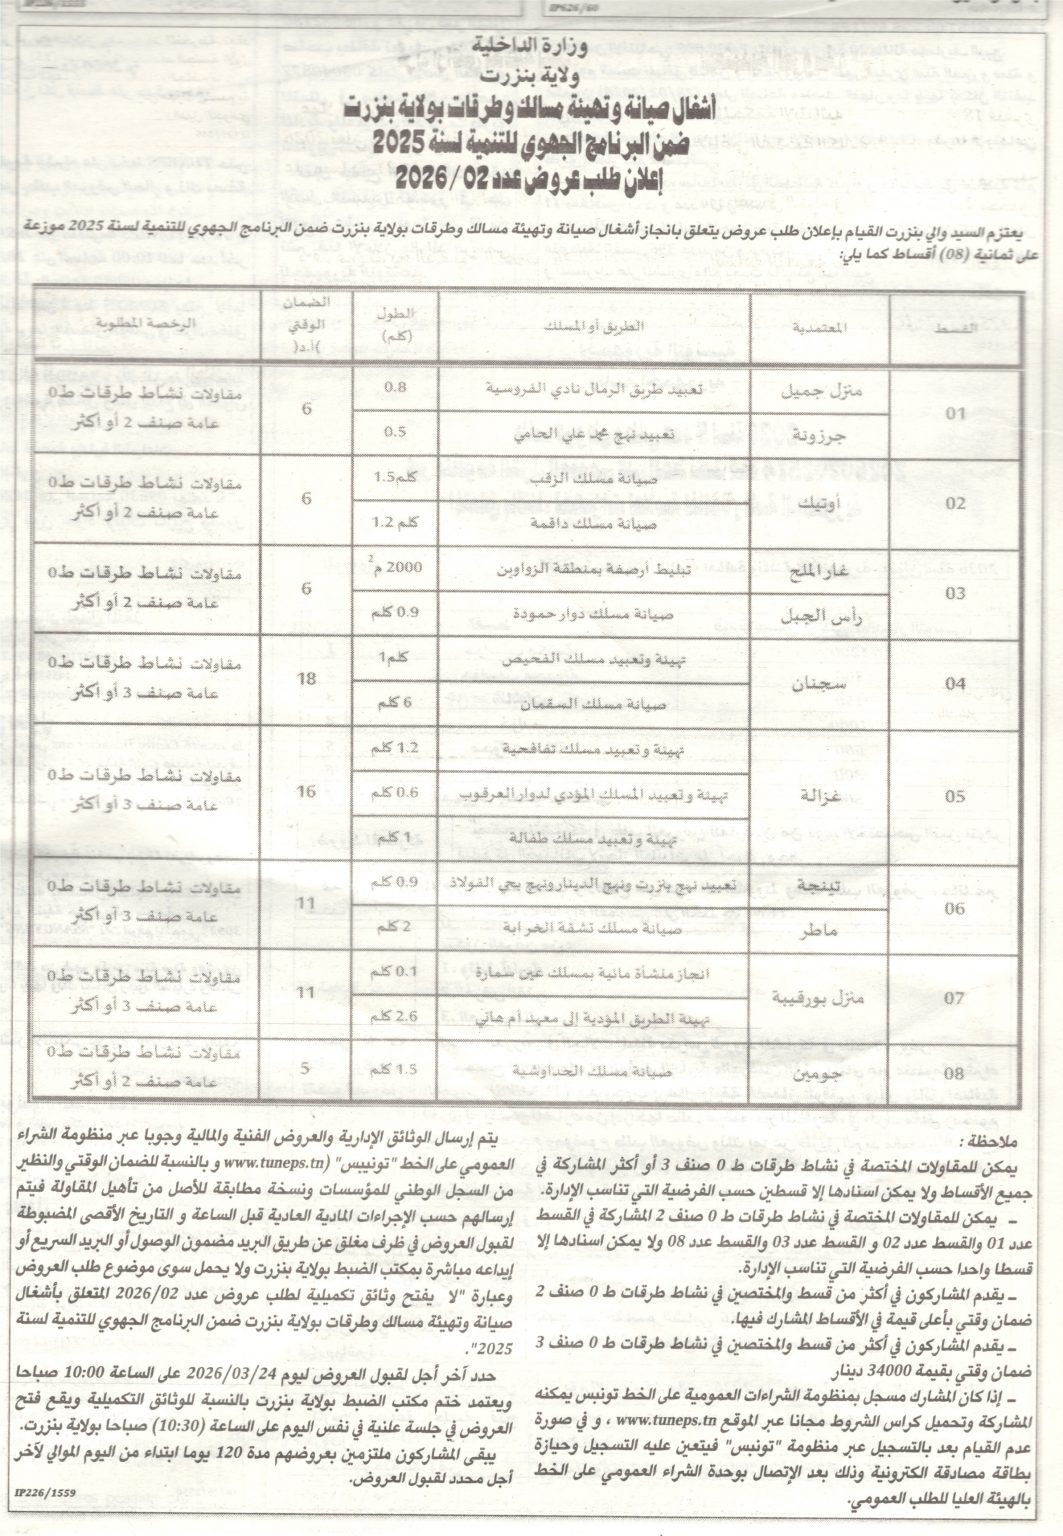 IP626/60
وزارة الداخلية
ولاية بنزرت
أشغال صيانة وتهيئة مسالك وطرقات بولاية بنزرت
ضمن البرنامج الجهوي للتنمية لسنة 2025
إعلان طلب عروض عدد 2026/02
يعتزم السيد والي بنزرت القيام بإعلان طلب عروض يتعلق بانجاز أشغال صيانة وتهيئة مسالك وطرقات بولاية بنزرت ضمن البرنامج الجهوي للتنمية لسنة 2025 موزعة
على ثمانية (08) أقساط كما يلي:
القسط المعتمدية الطريق أو المسلك الطول (كلم) الضمان الوقتي (أ.د) الرخصة المطلوبة
01 منزل جميل تعبيد طريق الرمال نادي الفروسية 0.8 6 مقاولات نشاط طرقات ط0 عامة صنف 2 أو أكثر
جرزونة تعبيد نهج محمد علي الحامي 0.5
02 أوتيك صيانة مسلك الزقب 1.5كلم 6 مقاولات نشاط طرقات ط0 عامة صنف 2 أو أكثر
صيانة مسلك داقمة 1.2 كلم
03 غار الملح تبليط أرصفة بمنطقة الزواوين 2000 م2 6 مقاولات نشاط طرقات ط0 عامة صنف 2 أو أكثر
رأس الجبل صيانة مسلك دوار حمودة 0.9 كلم
04 سجنان تهيئة وتعبيد مسلك الفحيص 1كلم 18 مقاولات نشاط طرقات ط0 عامة صنف 3 أو أكثر
صيانة مسلك السقمان 6 كلم
05 غزالة تهيئة وتعبيد مسلك تفافحية 1.2 كلم 16 مقاولات نشاط طرقات ط0 عامة صنف 3 أو أكثر
تهيئة وتعبيد المسلك المؤدي لدوار العرقوب 0.6 كلم
تهيئة وتعبيد مسلك طفالة 1 كلم
06 تينجة تعبيد نهج بنزرت ونهج الدينار ونهج يحي الفولاذ 0.9 كلم 11 مقاولات نشاط طرقات ط0 عامة صنف 3 أو أكثر
ماطر صيانة مسلك تشقة الخرابة 2 كلم
07 منزل بورقيبة انجاز منشأة مائية بمسلك عين سمارة 0.1 كلم 11 مقاولات نشاط طرقات ط0 عامة صنف 3 أو أكثر
تهيئة الطريق المؤدية إلى معهد أم هاني 2.6 كلم
08 جومين صيانة مسلك الحداوشية 1.5 كلم 5 مقاولات نشاط طرقات ط0 عامة صنف 2 أو أكثر
ملاحظة :
يمكن للمقاولات المختصة في نشاط طرقات ط 0 صنف 3 أو أكثر المشاركة في
جميع الأقساط ولا يمكن اسنادها إلا قسطين حسب الفرضية التي تناسب الإدارة.
ـ يمكن للمقاولات المختصة في نشاط طرقات ط 0 صنف 2 المشاركة في القسط
عدد 01 والقسط عدد 02 و القسط عدد 03 والقسط عدد 08 ولا يمكن اسنادها إلا
قسطا واحدا حسب الفرضية التي تناسب الإدارة.
ـ يقدم المشاركون في أكثر من قسط والمختصين في نشاط طرقات ط 0 صنف 2
ضمان وقتي بأعلى قيمة في الأقساط المشارك فيها.
ـ يقدم المشاركون في أكثر من قسط والمختصين في نشاط طرقات ط 0 صنف 3
ضمان وقتي بقيمة 34000 دينار
ـ إذا كان المشارك مسجل بمنظومة الشراءات العمومية على الخط تونبس يمكنه
المشاركة وتحميل كراس الشروط مجانا عبر الموقع www.tuneps.tn ، و في صورة
عدم القيام بعد بالتسجيل عبر منظومة "تونبس" فيتعين عليه التسجيل وحيازة
بطاقة مصادقة الكترونية وذلك بعد الإتصال بوحدة الشراء العمومي على الخط
بالهيئة العليا للطلب العمومي.
يتم إرسال الوثائق الإدارية والعروض الفنية والمالية وجوبا عبر منظومة الشراء
العمومي على الخط "تونيبس" (www.tuneps.tn و بالنسبة للضمان الوقتي والنظير
من السجل الوطني للمؤسسات ونسخة مطابقة للأصل من تأهيل المقاولة فيتم
إرسالهم حسب الإجراءات المادية العادية قبل الساعة و التاريخ الأقصى المضبوطة
لقبول العروض في ظرف مغلق عن طريق البريد مضمون الوصول أو البريد السريع أو
إيداعه مباشرة بمكتب الضبط بولاية بنزرت ولا يحمل سوى موضوع طلب العروض
وعبارة "لا يفتح وثائق تكميلية لطلب عروض عدد 2026/02 المتعلق بأشغال
صيانة وتهيئة مسالك وطرقات بولاية بنزرت ضمن البرنامج الجهوي للتنمية لسنة
2025".
حدد آخر أجل لقبول العروض ليوم 2026/03/24 على الساعة 10:00 صباحا
ويعتمد ختم مكتب الضبط بولاية بنزرت بالنسبة للوثائق التكميلية ويقع فتح
العروض في جلسة علنية في نفس اليوم على الساعة (10:30) صباحا بولاية بنزرت.
يبقى المشاركون ملتزمين بعروضهم مدة 120 يوما ابتداء من اليوم الموالي لآخر
أجل محدد لقبول العروض.
IP226/1559